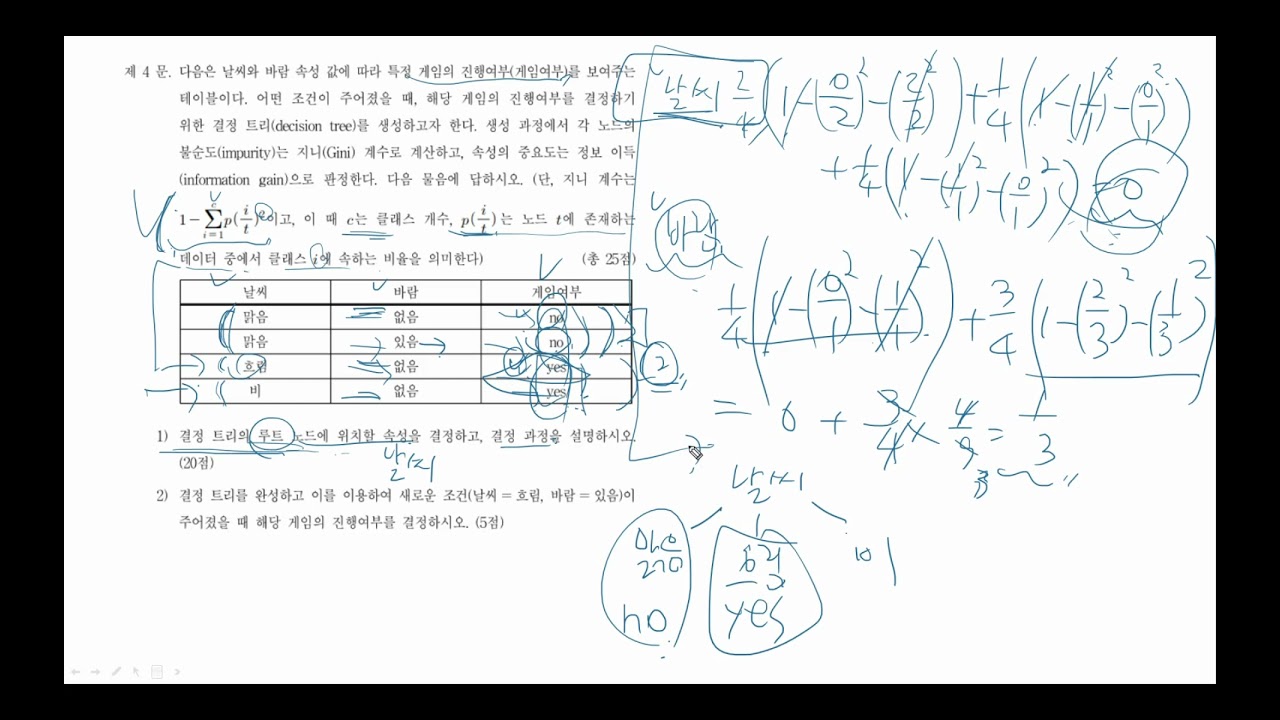 제 4 문. 다음은 날씨와 바람 속성 값에 따라 특정 게임의 진행여부(게임여부)를 보여주는
테이블이다. 어떤 조건이 주어졌을 때, 해당 게임의 진행여부를 결정하기
위한 결정 트리(decision tree)를 생성하고자 한다. 생성 과정에서 각 노드의
불순도(impurity)는 지니(Gini) 계수로 계산하고, 속성의 중요도는 정보 이득
(information gain)으로 판정한다. 다음 물음에 답하시오. (단, 지니 계수는
1 − ∑ i=1 c p(i/t)²이고, 이 때 c는 클래스 개수, p(i/t)는 노드 t에 존재하는
데이터 중에서 클래스 i에 속하는 비율을 의미한다) (총 25점)
날씨 바람 게임여부
맑음 없음 no
맑음 있음 no
흐림 없음 yes
비 없음 yes
1) 결정 트리의 루트 노드에 위치할 속성을 결정하고, 결정 과정을 설명하시오.
(20점)
날씨
2) 결정 트리를 완성하고 이를 이용하여 새로운 조건(날씨 = 흐림, 바람 = 있음)이
주어졌을 때 해당 게임의 진행여부를 결정하시오. (5점)
날씨 2/4 (1-(0/2)²-(2/2)²) + 1/4 (1-(1/1)²-(0/1)²)
+ 1/4 (1-(1/1)²-(0/1)²) = 0
바람
1/4 (1-(0/1)²-(1/1)²) + 3/4 (1-(2/3)²-(1/3)²)
= 0 + 3/4 × 4/9 = 1/3
②
날씨
맑음 흐림 비
no yes